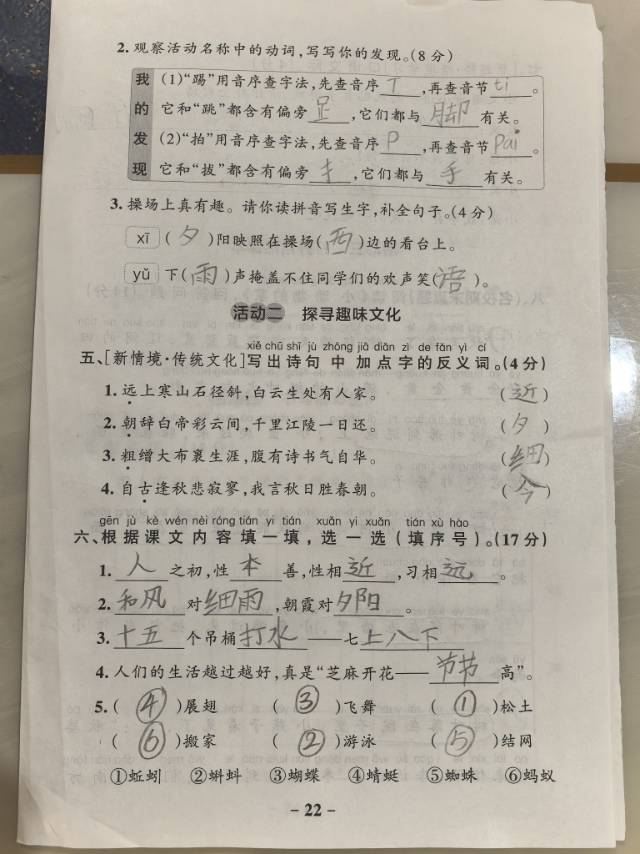 2.观察活动名称中的动词,写写你的发现。(8分)
我的发现
(1)“踢”用音序查字法,先查音序 T ,再查音节 ti 。
它和“跳”都含有偏旁 𧾷 ,它们都与 脚 有关。
(2)“拍”用音序查字法,先查音序 P ,再查音节 pai 。
它和“拔”都含有偏旁 扌 ,它们都与 手 有关。
3.操场上真有趣。请你读拼音写生字,补全句子。(4分)
xī ( 夕 )阳映照在操场( 西 )边的看台上。
yǔ 下( 雨 )声掩盖不住同学们的欢声笑( 语 )。
活动二 探寻趣味文化
xiě chū shī jù zhōng jiā diǎn zì de fǎn yì cí
五、[新情境·传统文化]写出诗句中加点字的反义词。(4分)
1.远上寒山石径斜,白云生处有人家。 ( 近 )
2.朝辞白帝彩云间,千里江陵一日还。 ( 夕 )
3.粗缯大布裹生涯,腹有诗书气自华。 ( 细 )
4.自古逢秋悲寂寥,我言秋日胜春朝。 ( 今 )
gēn jù kè wén nèi róng tián yi tián xuǎn yi xuǎn tián xù hào
六、根据课文内容填一填,选一选(填序号)。(17分)
1. 人 之初,性 本 善,性相 近 ,习相 远 。
2. 和风 对 细雨 ,朝霞对 夕阳 。
3. 十五 个吊桶 打水 ——七 上八下
4.人们的生活越过越好,真是“芝麻开花—— 节节 高”。
5.( ④ )展翅 ( ③ )飞舞 ( ① )松土
( ⑥ )搬家 ( ② )游泳 ( ⑤ )结网
①蚯蚓 ②蝌蚪 ③蝴蝶 ④蜻蜓 ⑤蜘蛛 ⑥蚂蚁
- 22 -